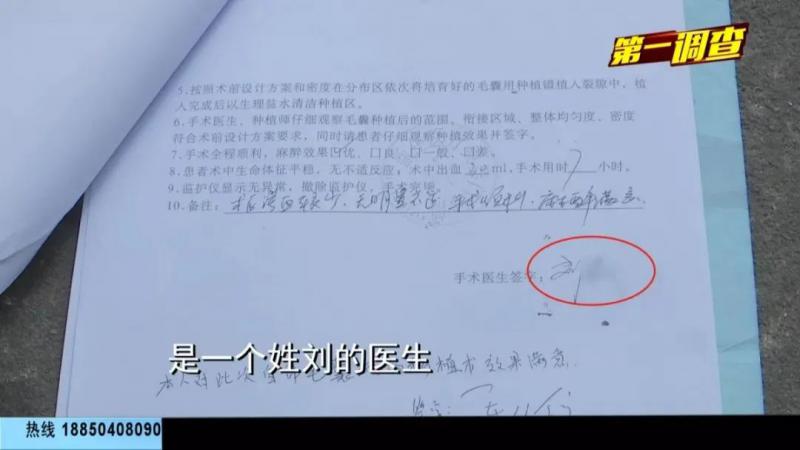 第一调查
5.按照术前设计方案和密度在分布区依次将培育好的毛囊用种植镊植入裂隙中，植
入完成后以生理盐水清洁种植区。
6.手术医生、种植师仔细观察毛囊种植后的范围、衔接区域、整体均匀度、密度
符合术前设计方案要求，同时请患者仔细观察种植效果并签字。
7.手术全程顺利，麻醉效果囗优、囗良、囗一般、囗差。
8.患者术中生命体征平稳，无不适反应；术中出血 ml，手术用时 7 小时。
9.监护仪显示无异常，撤除监护仪，手术完毕
10.备注：
手术医生签字：刘
是一个姓刘的医生
本人对此次 效果满意
热线 18850408090